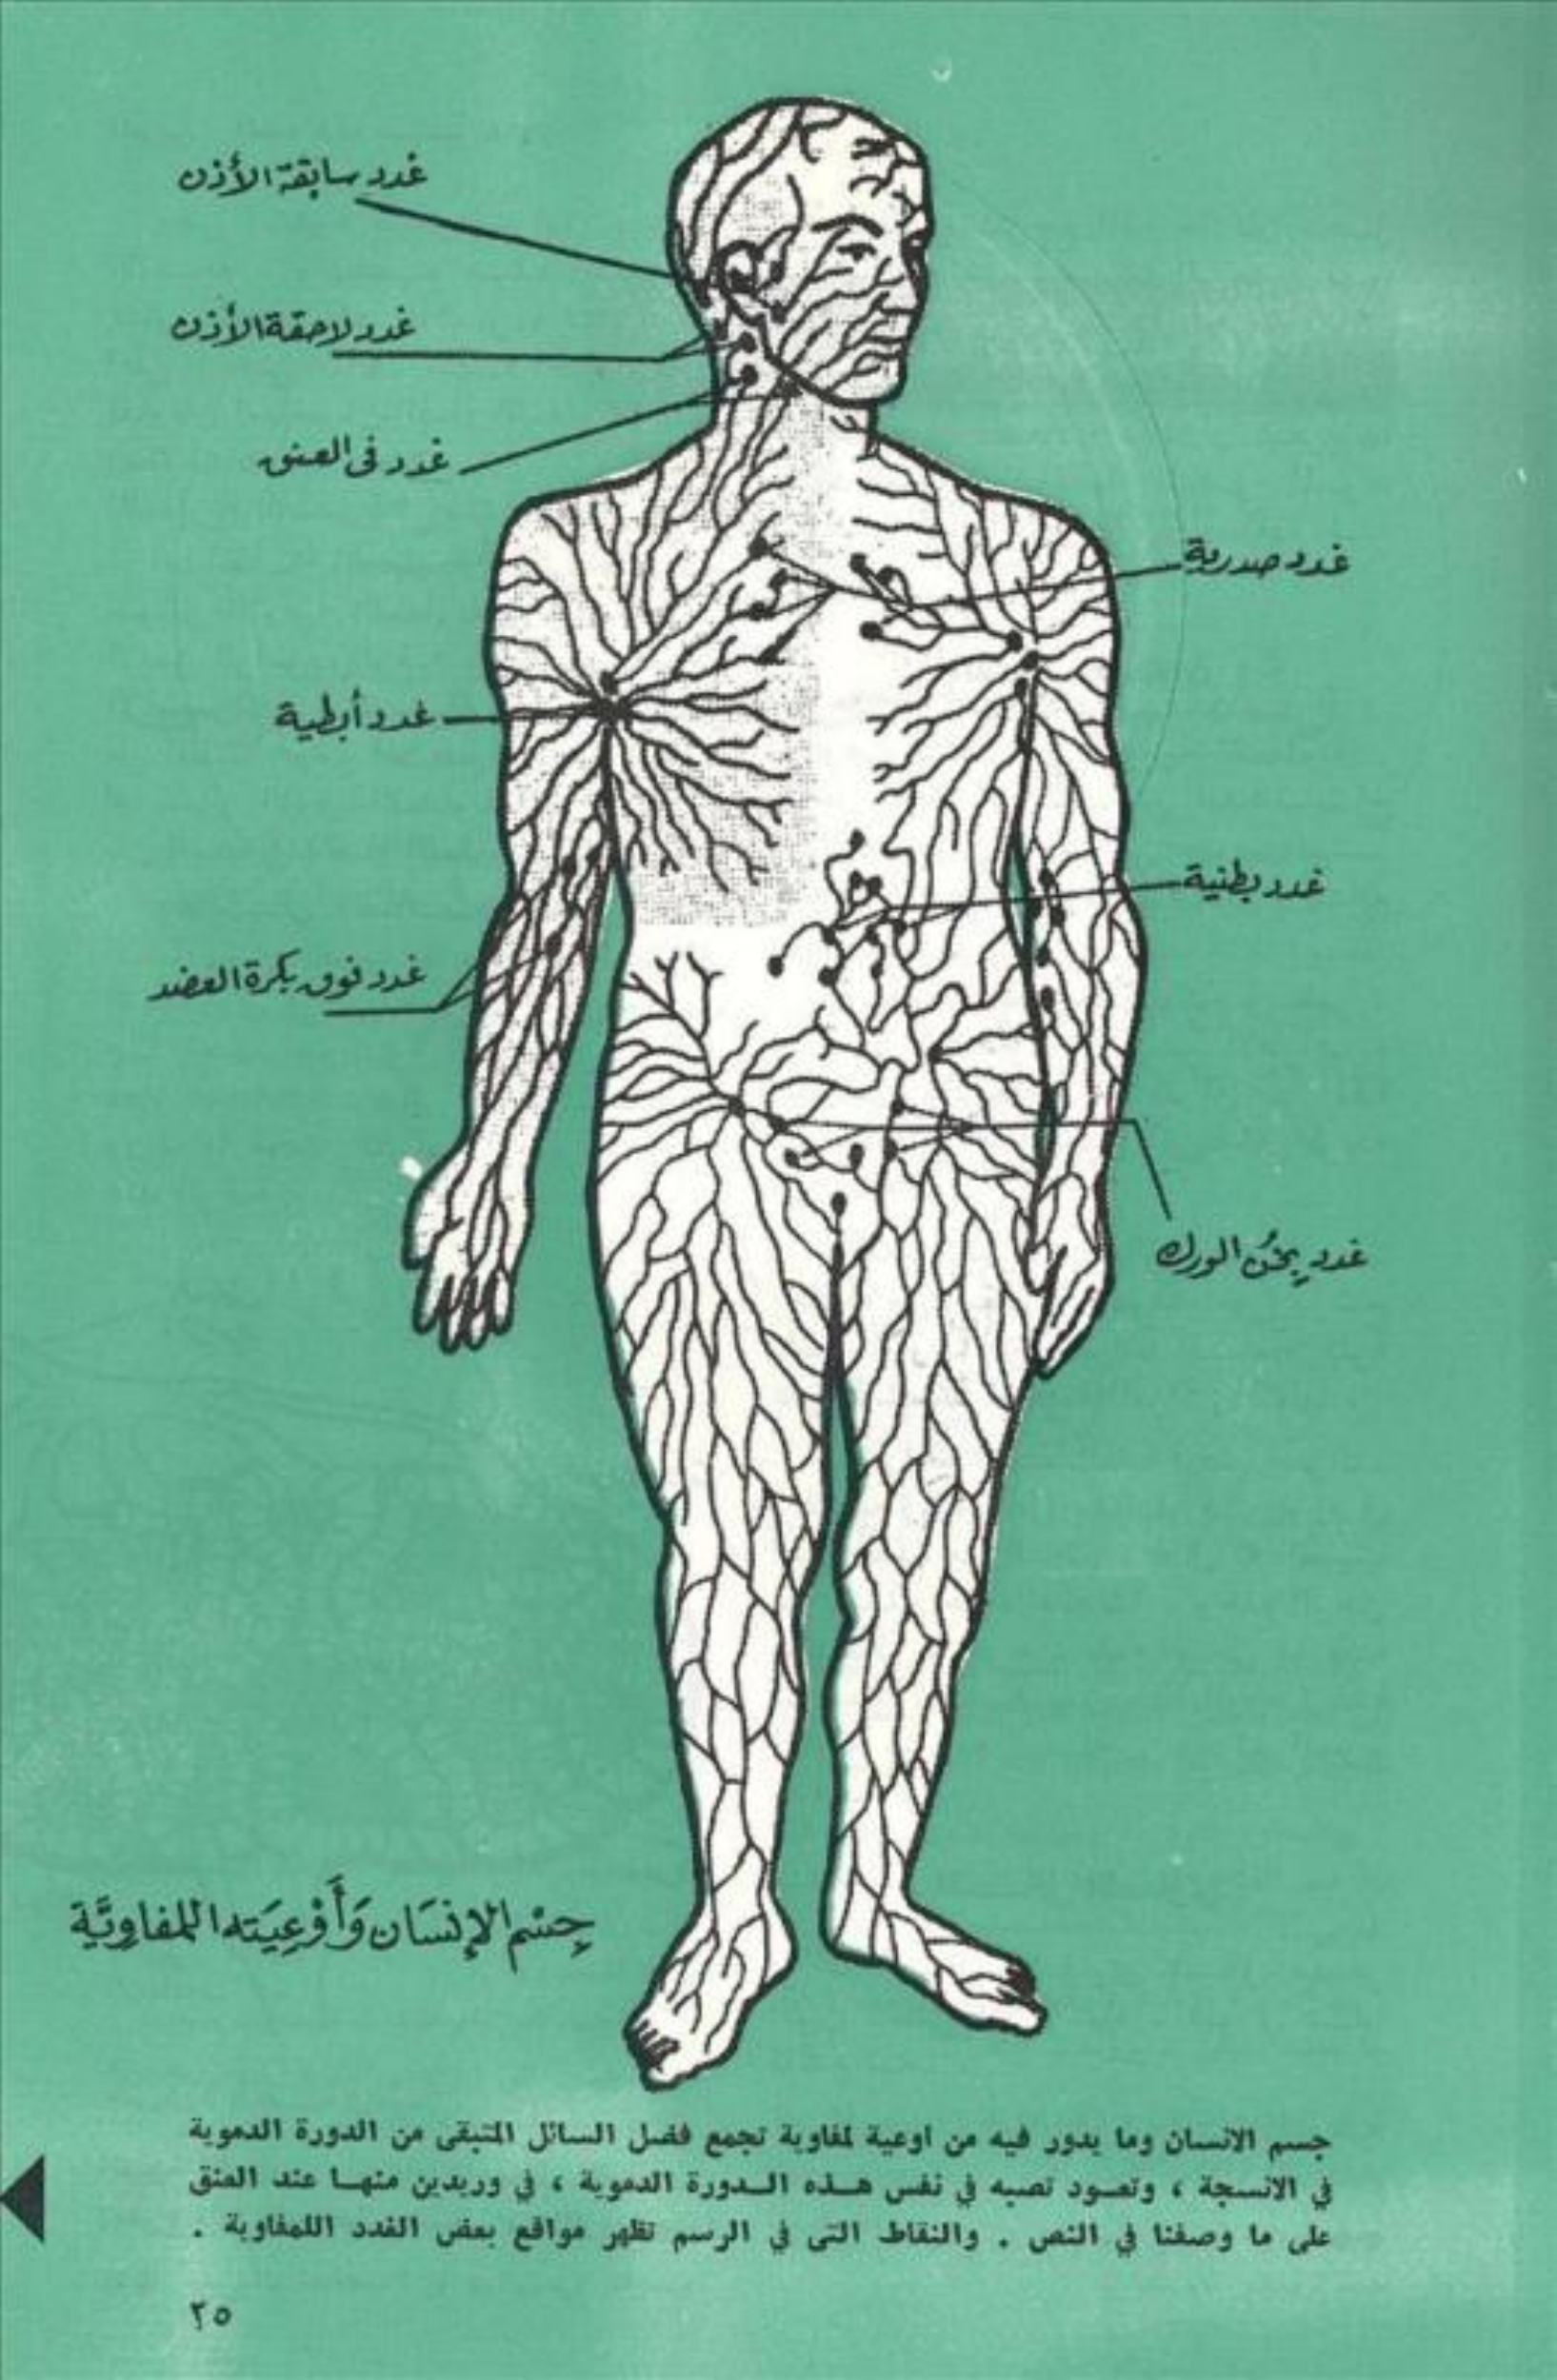 غدد سابقة الأذن
غدد لاحقة الأذن
غدد في العنق
غدد صدرية
غدد أبطية
غدد بطنية
غدد فوق بكرة العضد
غدد بخُن الورك
جِسْم الإنسَان وَأَوْعِيَته اللمفاويَّة
جسم الانسان وما يدور فيه من اوعية لمفاوية تجمع فضل السائل المتبقى من الدورة الدموية
في الانسجة ، وتعود تصبه في نفس هذه الدورة الدموية ، في وريدين منها عند العنق
على ما وصفنا في النص . والنقاط التى في الرسم تظهر مواقع بعض الغدد اللمفاوية .
٢٥